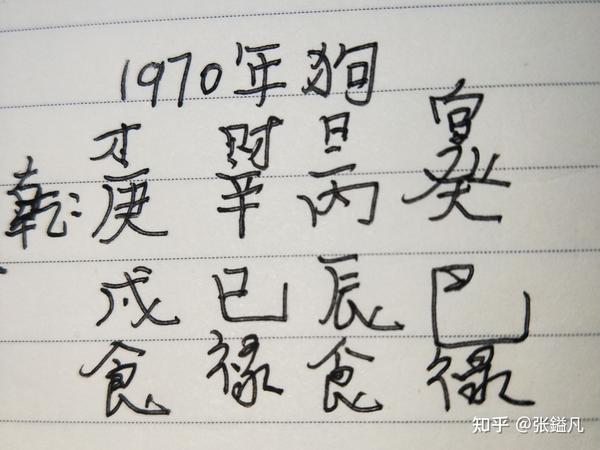 1970年 狗
才 财 日 官
乾: 庚 辛 丙 癸
戌 巳 辰 巳
食 禄 食 禄
知乎 @张鎰凡